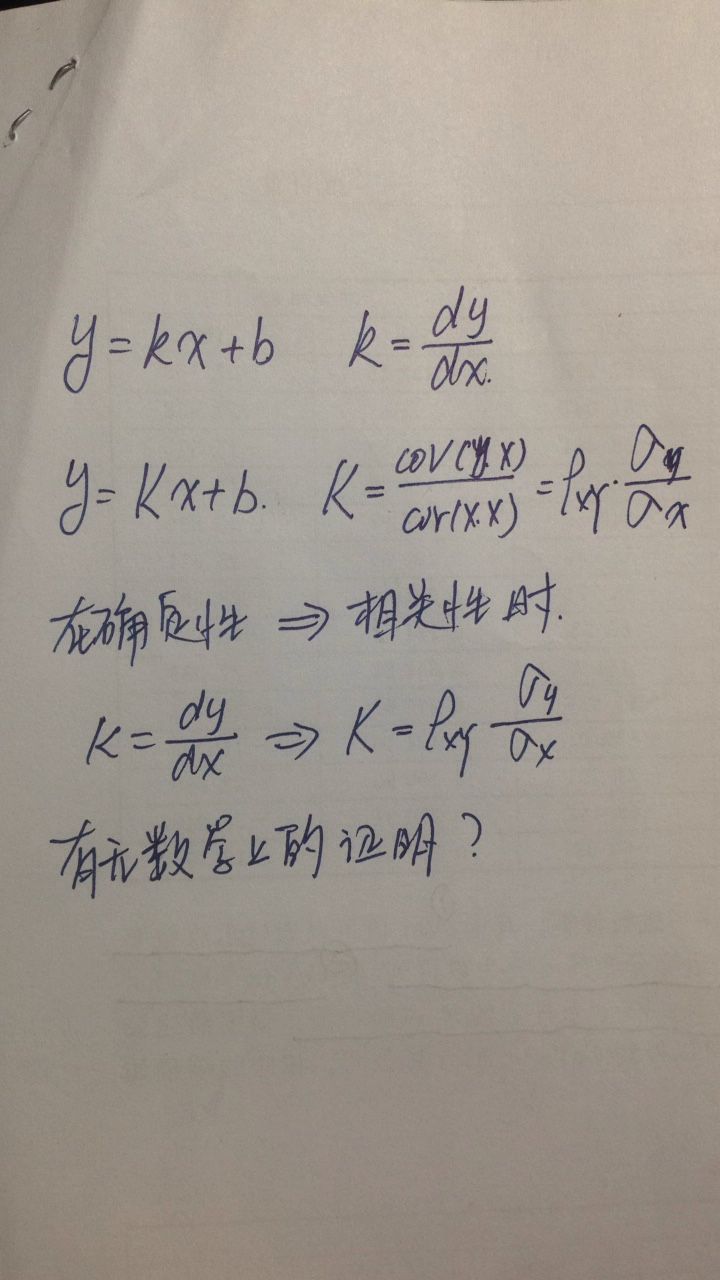 y=kx+b k=dy/dx.
y=Kx+b. K=cov(y.x)/cov(x.x)=ρxy·σy/σx
在确定性 ⇒ 相关性时.
K=dy/dx ⇒ K=ρxy σy/σx
有无数学上的证明?